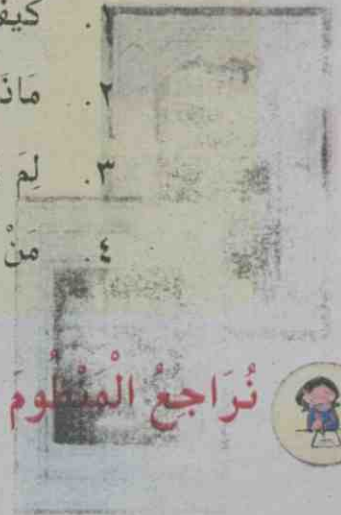 ١. كَيْفَ
٢. مَاذَ
٣. لِمَ
٤. مَنْ
نُرَاجِعُ الْمَنْظُوم